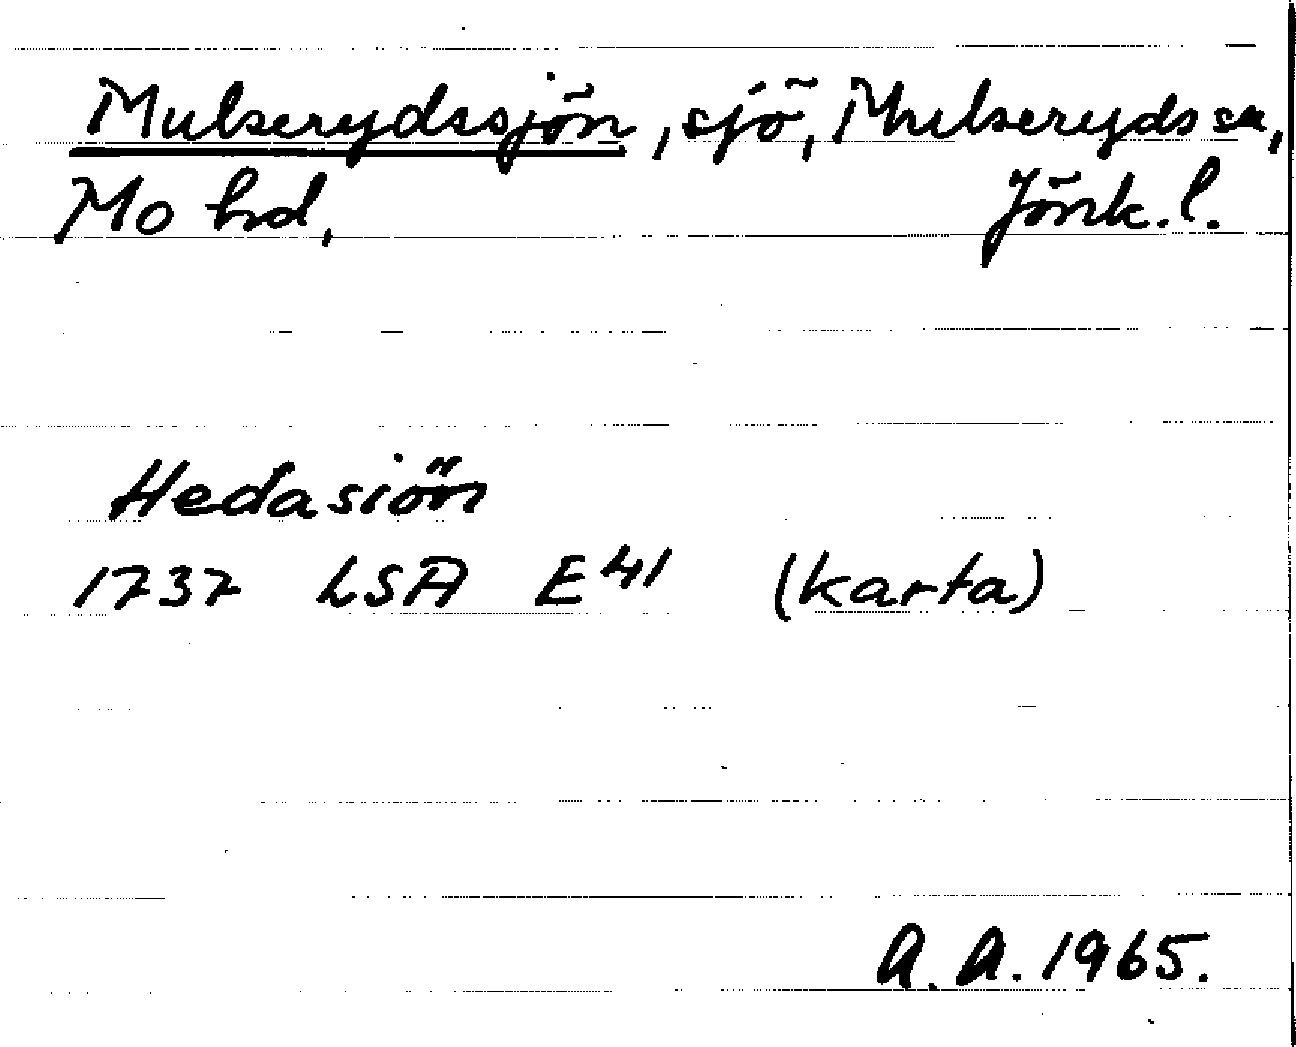 Mulserydssjön, sjö, Mulseryds sn,
Mo hd, Jönk. l.
Hedasiön
1737 LSA E41 (karta)
A. A. 1965.